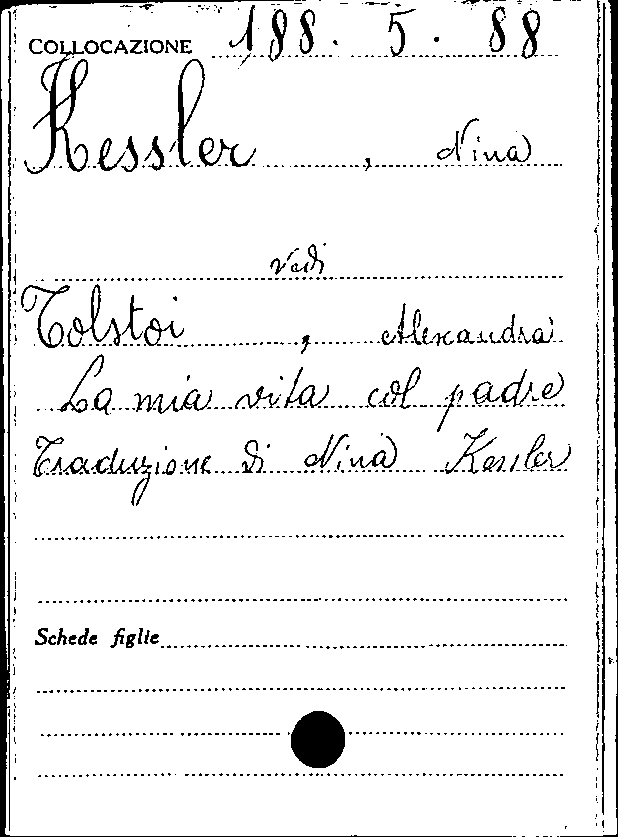 COLLOCAZIONE 188. 5. 88
Kessler, Nina
Vedi
Tolstoi, Alexandra
La mia vita col padre
Traduzione di Nina Kessler
Schede figlie